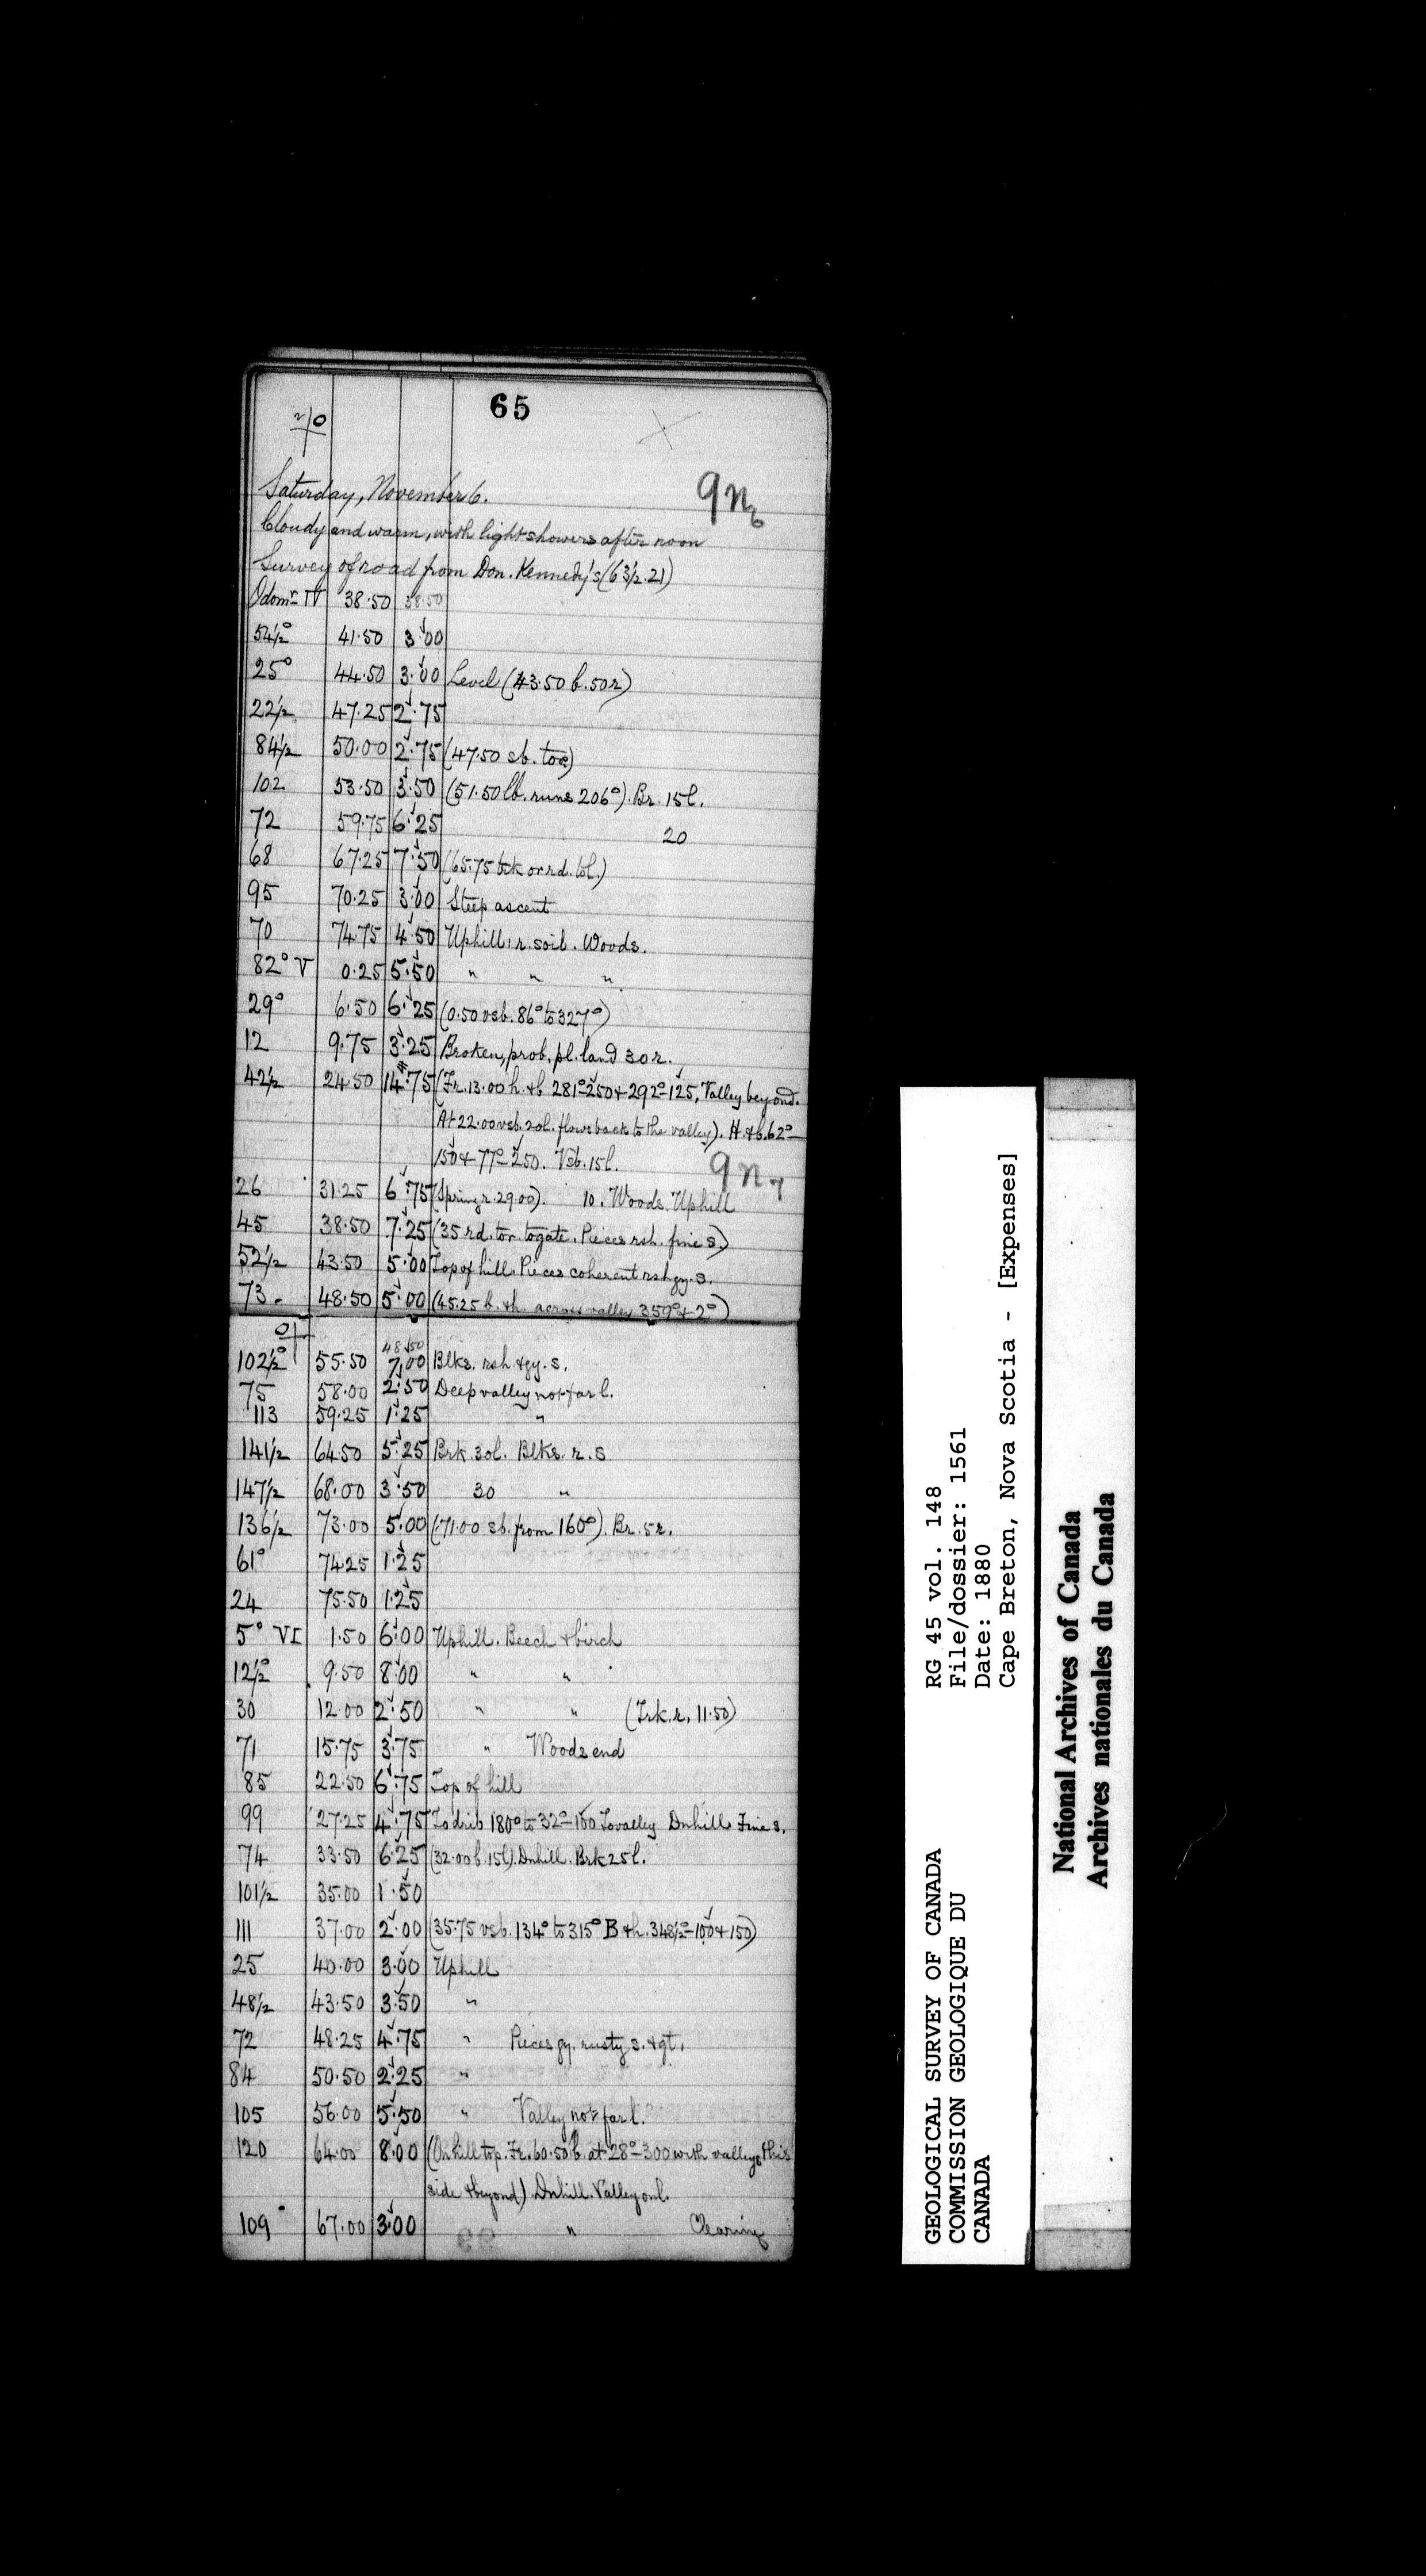 65
Saturday, November 6.
9n6
Cloudy and warm, with light showers after noon
Survey of road from Don. Kennedy's (63½.21)
Odomr IV 38.50 38.50
54½° 41.50 3.00
25° 44.50 3.00 Level (43.50 b. 50r)
22½ 47.25 2.75
84½ 50.00 2.75 (47.50 sb. to)
102 53.50 3.50 (51.50 lb. runs 206°). Br. 15l.
72 59.75 6.25 20
68 67.25 7.50 (65.75 trk or rd. tol.)
95 70.25 3.00 Steep ascent
70 74.75 4.50 Uphill, r. soil. Woods.
82° V 0.25 5.50 " " "
29° 6.50 6.25 (0.50 vsb. 86° to 327°)
12 9.75 3.25 Broken, prob. pl. land 30 r.
42½ 24.50 14.75 (Fr. 13.00 h. & b 281°-250 & 292°-125, Valley beyond.
At 22.00 vsb. 20l. flows back to the valley). H. & b. 62°-
150 & 77°-250. Vsb. 15l.
9n7
26 31.25 6.75 (Spring r. 29.00). 10. Woods. Uphill
45 38.50 7.25 (35 rd. tor. to gate. Pieces rsh. fine s.)
52½ 43.50 5.00 Top of hill. Pieces coherent rsh gy. s.
73 48.50 5.00 (45.25 b. & h. across valley 359° & 2°)
48.50
102½° 55.50 7.00 Blks. rsh. & gy. s.
75 58.00 2.50 Deep valley not far l.
113 59.25 1.25 "
141½ 64.50 5.25 Brk. 30l. Blks. r. s
147½ 68.00 3.50 30 "
136½ 73.00 5.00 (71.00 sb. from 160°). Br. 5r.
61° 74.25 1.25
24 75.50 1.25
5° VI 1.50 6.00 Uphill. Beech & birch
12½° 9.50 8.00 " "
30 12.00 2.50 " " (Trk. r. 11.50)
71 15.75 3.75 " Woods end
85 22.50 6.75 Top of hill
99 27.25 4.75 180° to 32°-100 To valley Dnhill. Fine s.
74 33.50 6.25 (32.00 b. 15l). Dnhill. Brk 25l.
101½ 35.00 1.50
111 37.00 2.00 (35.75 vsb. 134° to 315° B & h. 348½°-100 & 150)
25 40.00 3.00 Uphill
48½ 43.50 3.50 "
72 48.25 4.75 " Pieces gy. rusty s. & qt.
84 50.50 2.25 "
105 56.00 5.50 " Valley not far l.
120 64.00 8.00 (On hill top. Fr. 60.50 b. at 28°-300 with valleys this
side & beyond). Dnhill. Valley on l.
109° 67.00 3.00 " Clearing
GEOLOGICAL SURVEY OF CANADA
COMMISSION GEOLOGIQUE DU
CANADA
RG 45 vol. 148
File/dossier: 1561
Date: 1880
Cape Breton, Nova Scotia - [Expenses]
National Archives of Canada
Archives nationales du Canada